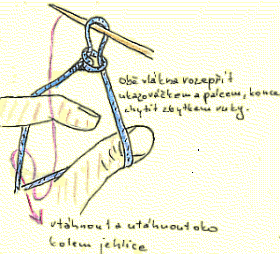 obě vlákna rozepřít
ukazováčkem a palcem, konce
chytit zbytkem ruky.
vtáhnout a utáhnout oko
kolem jehlice